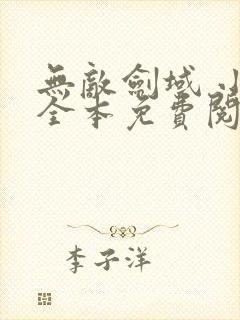 無敵劍域 小
全本免費閱
李子洋